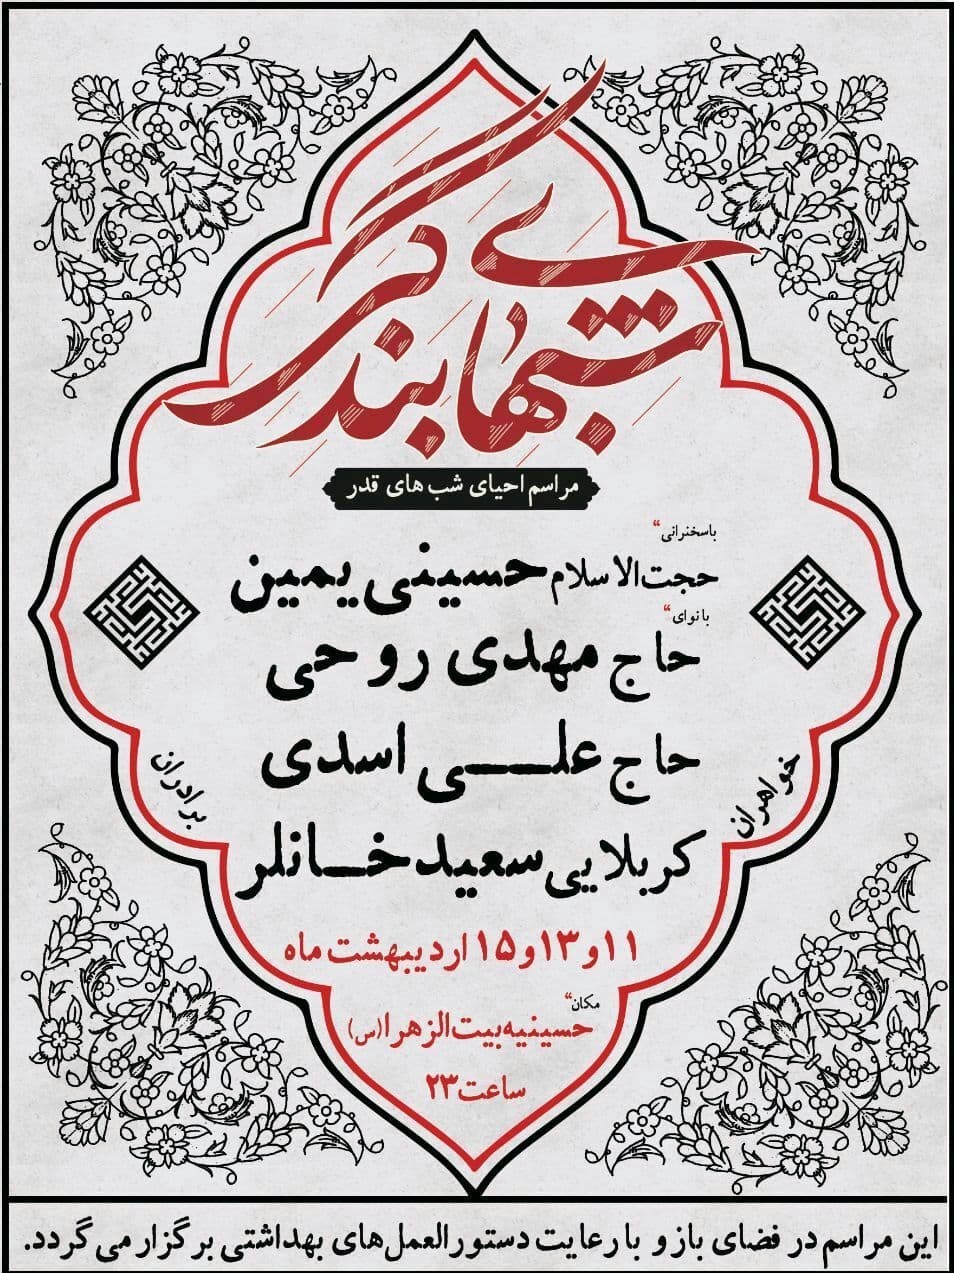 شبهای بندگی
مراسم احیای شب های قدر
باسخنرانی"
حجت الاسلام حسینی یمین
بانوای"
حاج مهدی روحی
حاج علی اسدی
کربلایی سعید خانلر
خواهران
برادران
۱۱و۱۳و۱۵ اردیبهشت ماه
مکان"
حسینیه بیت الزهرا(س)
ساعت ۲۳
این مراسم در فضای باز و با رعایت دستورالعمل‌های بهداشتی برگزار می گردد.